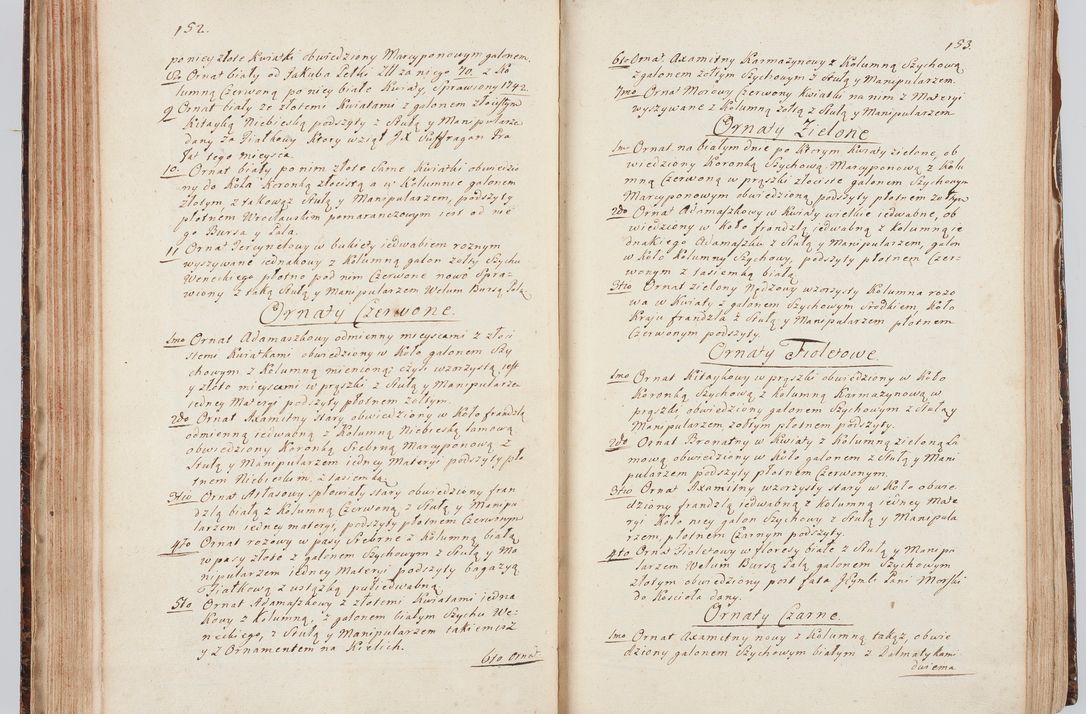 152.
po niey złote kwiatki obwiedziony Marcyponowym galonem.
8o Ornat biały od Jakuba Pełki Zł za niego 70. z Ko
lumną Czerwoną po niey białe Kwiaty, Sprawiony 1742.
9 Ornat biały ze złotemi Kwiatami z galonem złocistym
Kitayką Niebieską podszyty z Stułą y Manipularze
dany za Fiałkowy Ktory wziął JX Suffragan Pra
łat tego mieysca.
10. Ornat biały po nim złote Same Kwiatki obwiedzio
ny do Koła Koronką złocistą a w Kolumnie galonem
złotym, z takowąż Stułą y Manipularzem, podszyty
płotnem Wrocławskim pomaranczowym iest od nie
go Bursa y Pala.
11 Ornat Tercynelowy w bukiety iedwabiem roznym
wyszywane iednakowy z Kolumną galon żołty Szychu
Weneckiego płotno pod nim Czerwone nowo Spra
wiony z taką Stułą y Manipularzem Welum Bursą Palą
Ornaty Czerwone.
1mo Ornat Adamaszkowy odmienny mieyscami z złoci
stemi Kwiatkami obwiedziony w Koło galonem Szy
chowym. z Kolumną mieniącą czyli wzorzystą iest
y złoto mieyscami w prąszki z Stułą y Manipularze
iedney Materyi podszyty płotnem żołtym.
2do Ornat Axamitny stary obwiedziony w Koło frandzlą
odmienną iedwabną z Kolumną Niebieską lamową
obwiedziony Koronką Srebrną Marcyponową z
Stułą y Manipularzem iedney Materyi podszyty pło
tnem Niebieskim, z tasiemką
3tio Ornat Atłasowy spłowiały stary obwiedziony fran
dzlą białą z Kolumną Czerwoną z Stułą y Manipu
larzem iedney materyi, podszyty płotnem Czerwonym
4to Ornat rożowy w pasy Srebrne z Kolumną białą
w pasy złote z galonem Szychowym z Stułą y Ma
nipularzem iedney Materyi podszyty bagazyą
Fiałkową z wstążką pułiedwabną
5to Ornat Adamaszkowy z złotemi Kwiatami iedna
kowy z Kolumną, z galonem białym Szychu We
neckiego, z Stułą y Manipularzem takiemisz
y z Ornamentem na Kielich.
6to. Ornat
153.
6to Ornat Axamitny Karmazynowy z Kolumną Szychową
z galonem żołtym Szychowym z Stułą y Manipularzem.
7mo Ornat Morowy Czerwony kwiatki na nim z Materyi
wyszywane z Kolumną żołtą z Stułą y Manipularzem
Ornaty Zielone
1mo Ornat na białym dnie po Ktorym Kwiaty zielone, ob
wiedziony Koronką Szychową Marcyponową z Kolu
mną Czerwoną w prąszki złociste galonem Szychowym
Marcyponowym obwiedzioną, podszyty płotnem żołtym
2do Ornat Adamaszkowy w Kwiaty wielkie iedwabne, ob
wiedziony w Koło frandzlą iedwabną z Kolumną ie
dnakiego Adamaszku z Stułą y Manipularzem, galon
w Koło Kolumny Szychowy, podszyty płotnem Czer
wonym z tasiemką białą
3tio Ornat zielony Nędzowy wzorzysty Kolumna rożo
wa w Kwiaty z galonem Szychowym Srodkiem, Koło
Kraju frandzla z Stułą y Manipularzem płotnem
Czerwonym podszyty.
Ornaty Fioletowe.
1mo Ornat Kitaykowy w prąszki obwiedziony w Koło
Koronką Szychową z Kolumną Karmazynową w
prążki, obwiedziony galonem Szychowym z Stułą y
Manipularzem, żołtym płotnem podszyty.
2do Ornat Brunatny w Kwiaty z Kolumną zieloną La
mową obwiedziony w Koło galonem z Stułą y Mani
pularzem podszyty płotnem Czerwonym.
3tio Ornat Axamitny wzorzysty stary w Koło obwie
dziony frandzlą iedwabną z Kolumną iedney Mate
ryi Koło niey galon Szychowy z Stułą y Manipula
rzem, płotnem Czarnym podszyty.
4to Ornat Fioletowy w floresy białe z Stułą y Manipu
larzem Welum Bursą Palą galonem Szychowym
złotym obwiedziony post fata JWmł: Pani Morski
do Kościoła dany.
Ornaty Czarne.
1mo Ornat Axamitny nowy z Kolumną takąż, obwie
dziony galonem Szychowym białym z Dalmatykami
dwiema